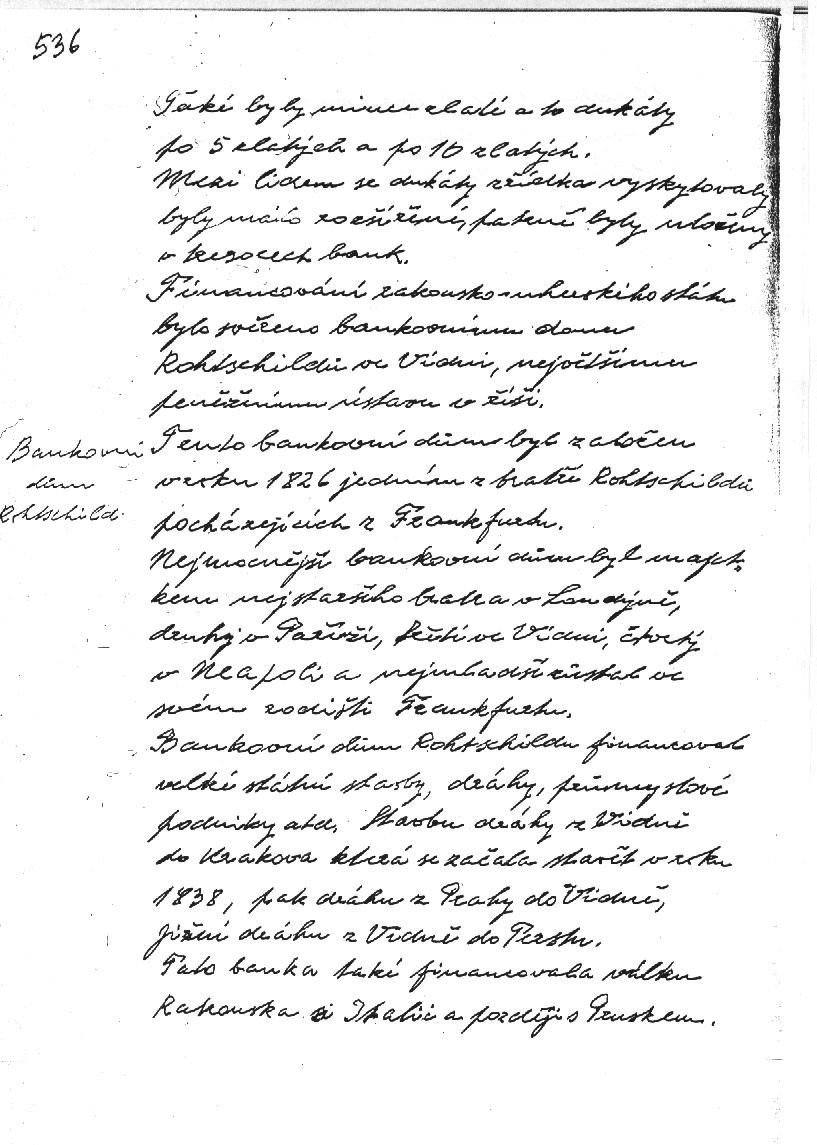 536
Také byly mince zlaté a to dukáty
po 5 zlatých a po 10 zlatých.
Mezi lidem se dukáty zřídka vyskytovaly
byly málo rozšířené, patrně byly uloženy
v trezorech bank.
Financování rakousko-uherského státu
bylo svěřeno bankovnímu domu
Rohtschildů ve Vídni, největšímu
peněžnímu ústavu v říši.
Bankovní
dům
Rohtschild.
Tento bankovní dům byl založen
v roku 1826 jedním z bratří Rohtschildů
pocházejících z Frankfurtu.
Nejmocnější bankovní dům byl majet-
kem nejstaršího bratra v Londýně,
druhý v Paříži, třetí ve Vídni, čtvrtý
v Neapoli a nejmladší zůstal ve
svém rodišti Frankfurtu.
Bankovní dům Rohtschildu financoval
velké státní stavby, dráhy, průmyslové
podniky atd. Stavbu dráhy z Vídně
do Krakova která se začala stavět v roku
1838, pak dráhu z Prahy do Vídně,
Jižní dráhu z Vídně do Terstu.
Tato banka také financovala válku
Rakouska s Itálií a později s Pruskem.